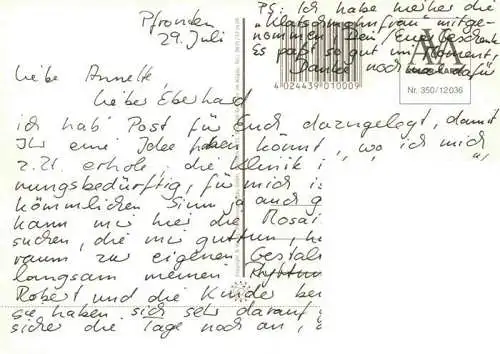 Pfronten
29. Juli
PS: Ich habe hierher die
"Klatschmohnfrau" mitge-
nommen, Dein/Euer Geschenk
Es paßt so gut im Moment,
Danke noch mal dafür
4 024439 010009
Nr. 350/12036
Liebe Annette
Lieber Eberhard
ich hab' Post für Euch dazugelegt, damit
Ihr eine Idee haben könnt, "wo ich mich
z. Zt. erhole", die Klinik i
nungsbedürftig, für mich is
kömmlichen Sinn ja auch g
kann mir hier die Mosai
suchen, die mir guttun, h
raum zur eigenen Gestal
langsam meinen
Robert und die Kinder be
sie haben sich sehr darauf
sicher die Tage noch an,